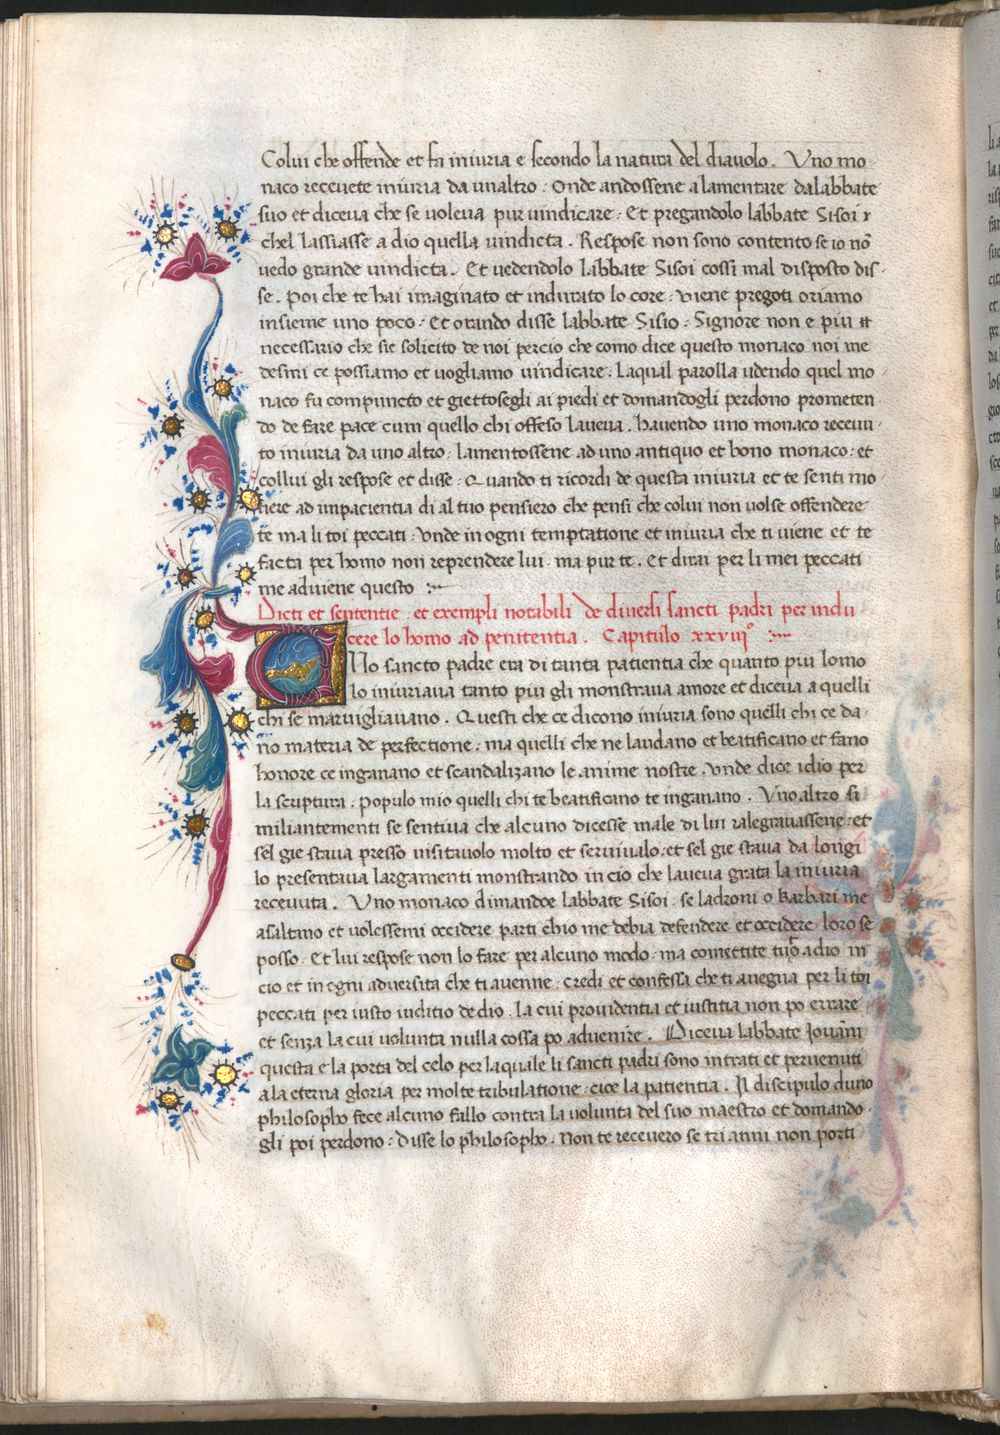 Colui che offende et fa iniuria e secondo la natura del diauolo. Vno mo
naco receuete iniuria da unaltro. Onde andossene a lamentare dalabbate
suo et diceua che se uoleua pur uindicare. Et pregandolo labbate Sisoi
chel lassiasse a dio quella uindicta. Respose non sono contento se io nō
uedo grande uindicta. Et uedendolo labbate Sisoi cossi mal disposto dis
se. Poi che te hai imaginato et indurato lo core. uiene pregoti oriamo
insieme uno poco. Et orando disse labbate Sisio. Signore non e piu
necessario che sie solicito de noi percio che como dice questo monaco noi me
desmi ce possiamo et uogliamo uindicare. Laqual parolla udendo quel mo
naco fu compuncto et giettosegli ai piedi et domandogli perdono prometen
do de fare pace cum quello chi offeso laueua. hauendo uno monaco receuu
to iniuria da uno altro. lamentossene ad uno antiquo et bono monaco. et
collui gli respose et disse. Quando ti ricordi de questa iniuria et te senti mo
uere ad impacientia di al tuo pensiero che pensi che colui non uolse offendere
te ma li toi peccati. vnde in ogni temptatione et iniuria che ti uiene et te
facta per homo non reprendere lui. ma pur te. Et dirai per li mei peccati
me aduiene questo
Dicti et sententie. et exempli notabili de diuersi sancti padri per indu
cere lo homo ad penitentia. Capitulo xxviijº
VNo sancto padre era di tanta patientia che quanto piu lomo
lo iniuriaua tanto piu gli monstraua amore et diceua a quelli
chi se marvigliauano. Questi che ce dicono iniuria sono quelli chi ce da
no materia de perfectione. ma quelli che ne laudano et beatificano et fano
honore ce inganano et scandalizano le anime nostre. vnde dice idio per
la scriptura. populo mio quelli chi te beatificano te inganano. Vno altro si
miliantementi se sentiua che alcuno dicesse male di lui ralegrauassene. et
sel gie staua presso uisitauolo molto et seruiualo. et sel gie staua da longi
lo presentaua largamenti monstrando in cio che laueua grata la iniuria
receuuta. Vno monaco dimandoe labbate Sisoi. se ladroni o Barbari me
asaltino et uolessemi occidere parti chio me debia defendere et occidere loro se
posso. Et lui respose non lo fare per alcuno modo. ma comettite a dio in
cio et in ogni aduersita che ti auenne. credi et confessa che ti auegna per li toi
peccati per iusto iuditio de dio. la cui prouidentia et iustitia non po errare
et senza la cui volunta nulla cossa po aduenire. Diceua labbate Iouāni
questa e la porta del celo per laquale li sancti padri sono intrati et peruenuti
a la eterna gloria per molte tribulatione. cioe la patientia. Il discipulo duno
philosopho fece alcuno fallo contra la volunta del suo maestro et domando
gli poi perdono. Disse lo philosopho. Non te receuero se tri anni non porti